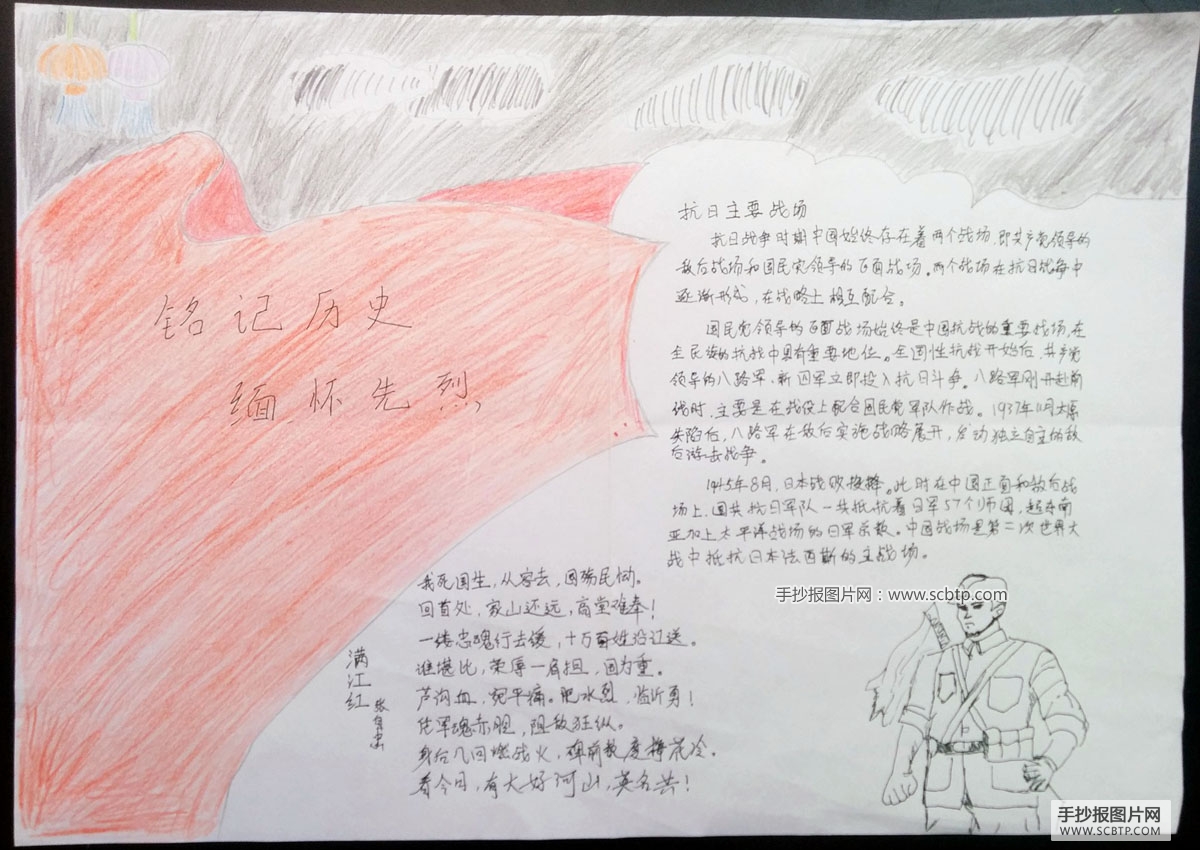 铭记历史
缅怀先烈
抗日主要战场
抗日战争时期中国始终存在着两个战场,即共产党领导的
敌后战场和国民党领导的正面战场。两个战场在抗日战争中
逐渐形成,在战略上相互配合。
国民党领导的正面战场始终是中国抗战的重要战场,在
全民族的抗战中具有重要地位。全国性抗战开始后,共产党
领导的八路军、新四军立即投入抗日斗争。八路军刚开赴前
线时,主要是在战役上配合国民党军队作战。1937年11月太原
失陷后,八路军在敌后实施战略展开,发动独立自主的敌
后游击战争。
1945年8月,日本战败投降。此时在中国正面和敌后战
场上,国共抗日军队一共抵抗着日军57个师团,超东南
亚加上太平洋战场的日军总数。中国战场是第二次世界大
战中抵抗日本法西斯的主战场。
满江红
张自忠
我死国生,从容去,国殇民恸。
回首处,家山还远,高堂难奉!
一缕忠魂行去缓,十万百姓沿江送。
谁堪比,荣辱一肩担,因为重。
芦沟血,宛平痛。肥水烈,临沂勇!
军魂赤胆,阻敌狂纵。
身后几回燃战火,碑前数度梅花冷。
看今日,有大好河山,英名共!
手抄报图片网:www.scbtp.com
手抄报图片网
WWW.SCBTP.COM